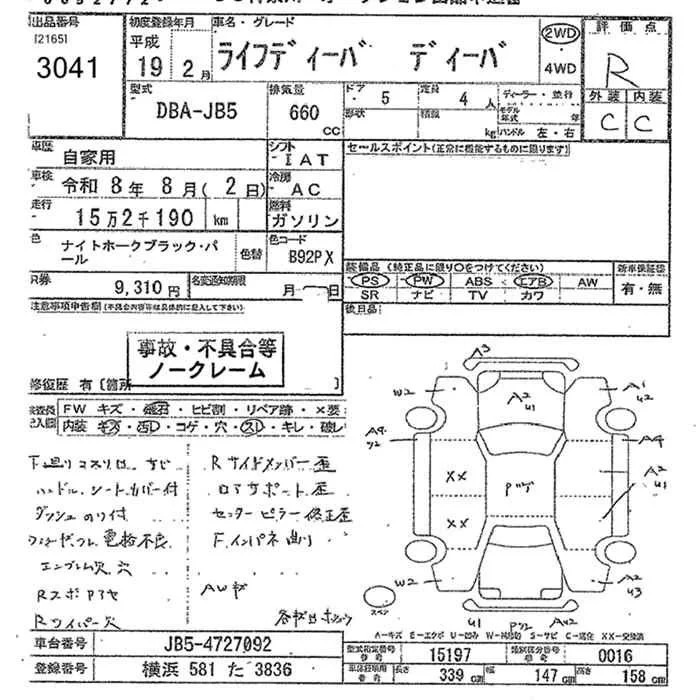 出品番号
[2165]
3041
初度登録年月
平成
19 2月
車名・グレード
ライフディーバ ディーバ
2WD
4WD
評価点
R
外装 内装
C C
型式
DBA-JB5
排気量
660
CC
ドア
5
形状
定員
4人
積載
kg
ディーラー・並行
モデル年式 年
ハンドル 左・右
車歴
自家用
シフト
IAT
セールスポイント(正常に機能するものに限ります)
車検
令和 8年 8月(2日)
冷房
AC
走行
15万2千190 km
燃料
ガソリン
色
ナイトホークブラック・パール
色替
色コード
B92PX
R券
9,310円
名変通知期限
月 日
装備品 (純正品に限り○をつけてください)
PS PW ABS エアB AW
SR ナビ TV カワ
新車保証書
有・無
注意事項申告欄(不具合内容等は具体的に記入して下さい)
後日品
事故・不具合等
ノークレーム
修復歴 有〔箇所 〕
検査員記入欄
FW キズ・飛石・ヒビ割・リペア跡・×要
内装・キズ・汚レ・コゲ・穴・スレ・キレ・破レ
ハンドル、シートカバー付
ダッシュのり付
電格不良
エンブレム欠、穴
Rワイパー欠
Rサイドメンバー歪
ロアサポート歪
センターピラー修正歪
F.インパネ曲り
AWキズ
A3
W2
A2
U1
A1
U2
A9
Y2
A4
XX
XX
A2
U1
W2
A2
U3
スペア
U1
A-キズ E-エクボ U-凹み W-補修跡 S-サビ C-腐食 XX-交換済
車台番号
JB5-4727092
型式指定番号
15197
類別区分番号
0016
登録番号
横浜 581 た 3836
長さ
339 cm
幅
147 cm
高さ
158 cm